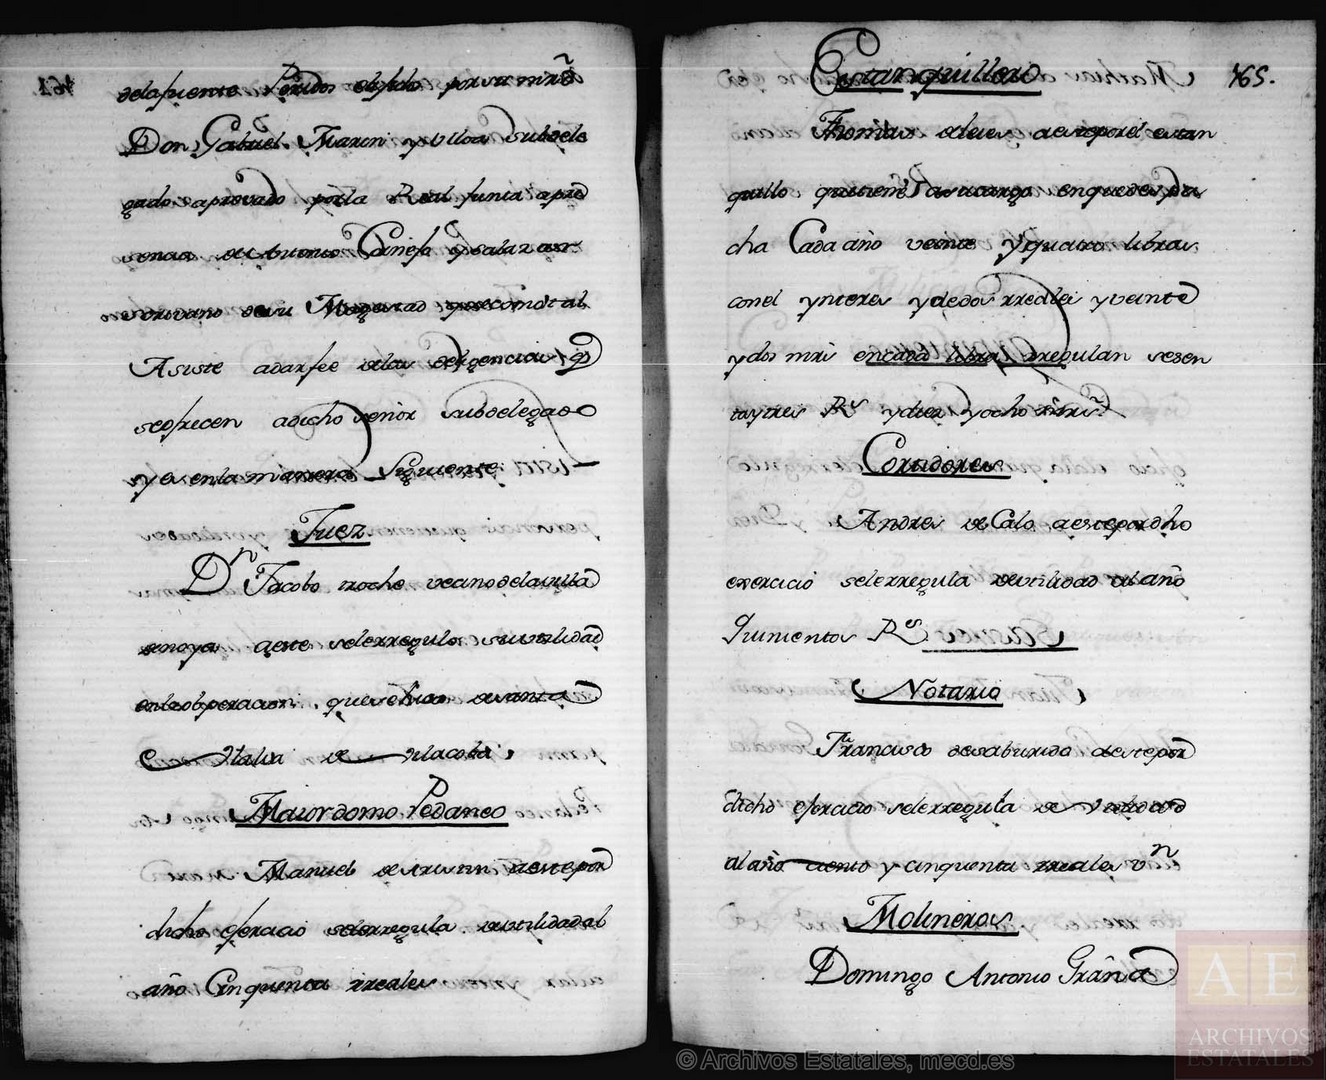 de la fuente Peritos elejido por su mrd
Don Gabriel Maxin y Ulloa Subdele
gado aprovado por la Real Junta a pre
sencia de Antonio Canosa y Salazar es
crivano de su Magestad que como tal
Asiste a dar fee de las deligencias q
se ofrecen a dicho señor subdelegado
y es en la manera Siguiente
Juez
Dn Jacobo rioho vecino de la villa
de noya a este se le rregulo su utilidad
en la operacion que se hizo de santa
Eulalia de Vilacoba
Maiordomo Pedaneo
Manuel de a este por
dicho ejercicio se le rregula de utilidad al
año Cinquenta rreales
465.
Estanquillero
Thomas de a este por el estan
quillo que tiene a su cargo en que des pa
cha Cada año veente y quatro libras
con el ynteres de dos rreales y veinte
y dos mrs en cada libra rregulan sesen
ta y tres Rs y diez y ocho mrs
Cortidores
Andres de Calo a este por dho
exercicio se le rregula de utilidad al año
Quinientos Rs
Notario
Francisco de saburido a este por
dicho ejercicio se le rregula de utilidad
al año ciento y cinquenta rreales vn
Molineros
Domingo Antonio Graña
AE
ARCHIVOS
ESTATALES
© Archivos Estatales, mecd.es